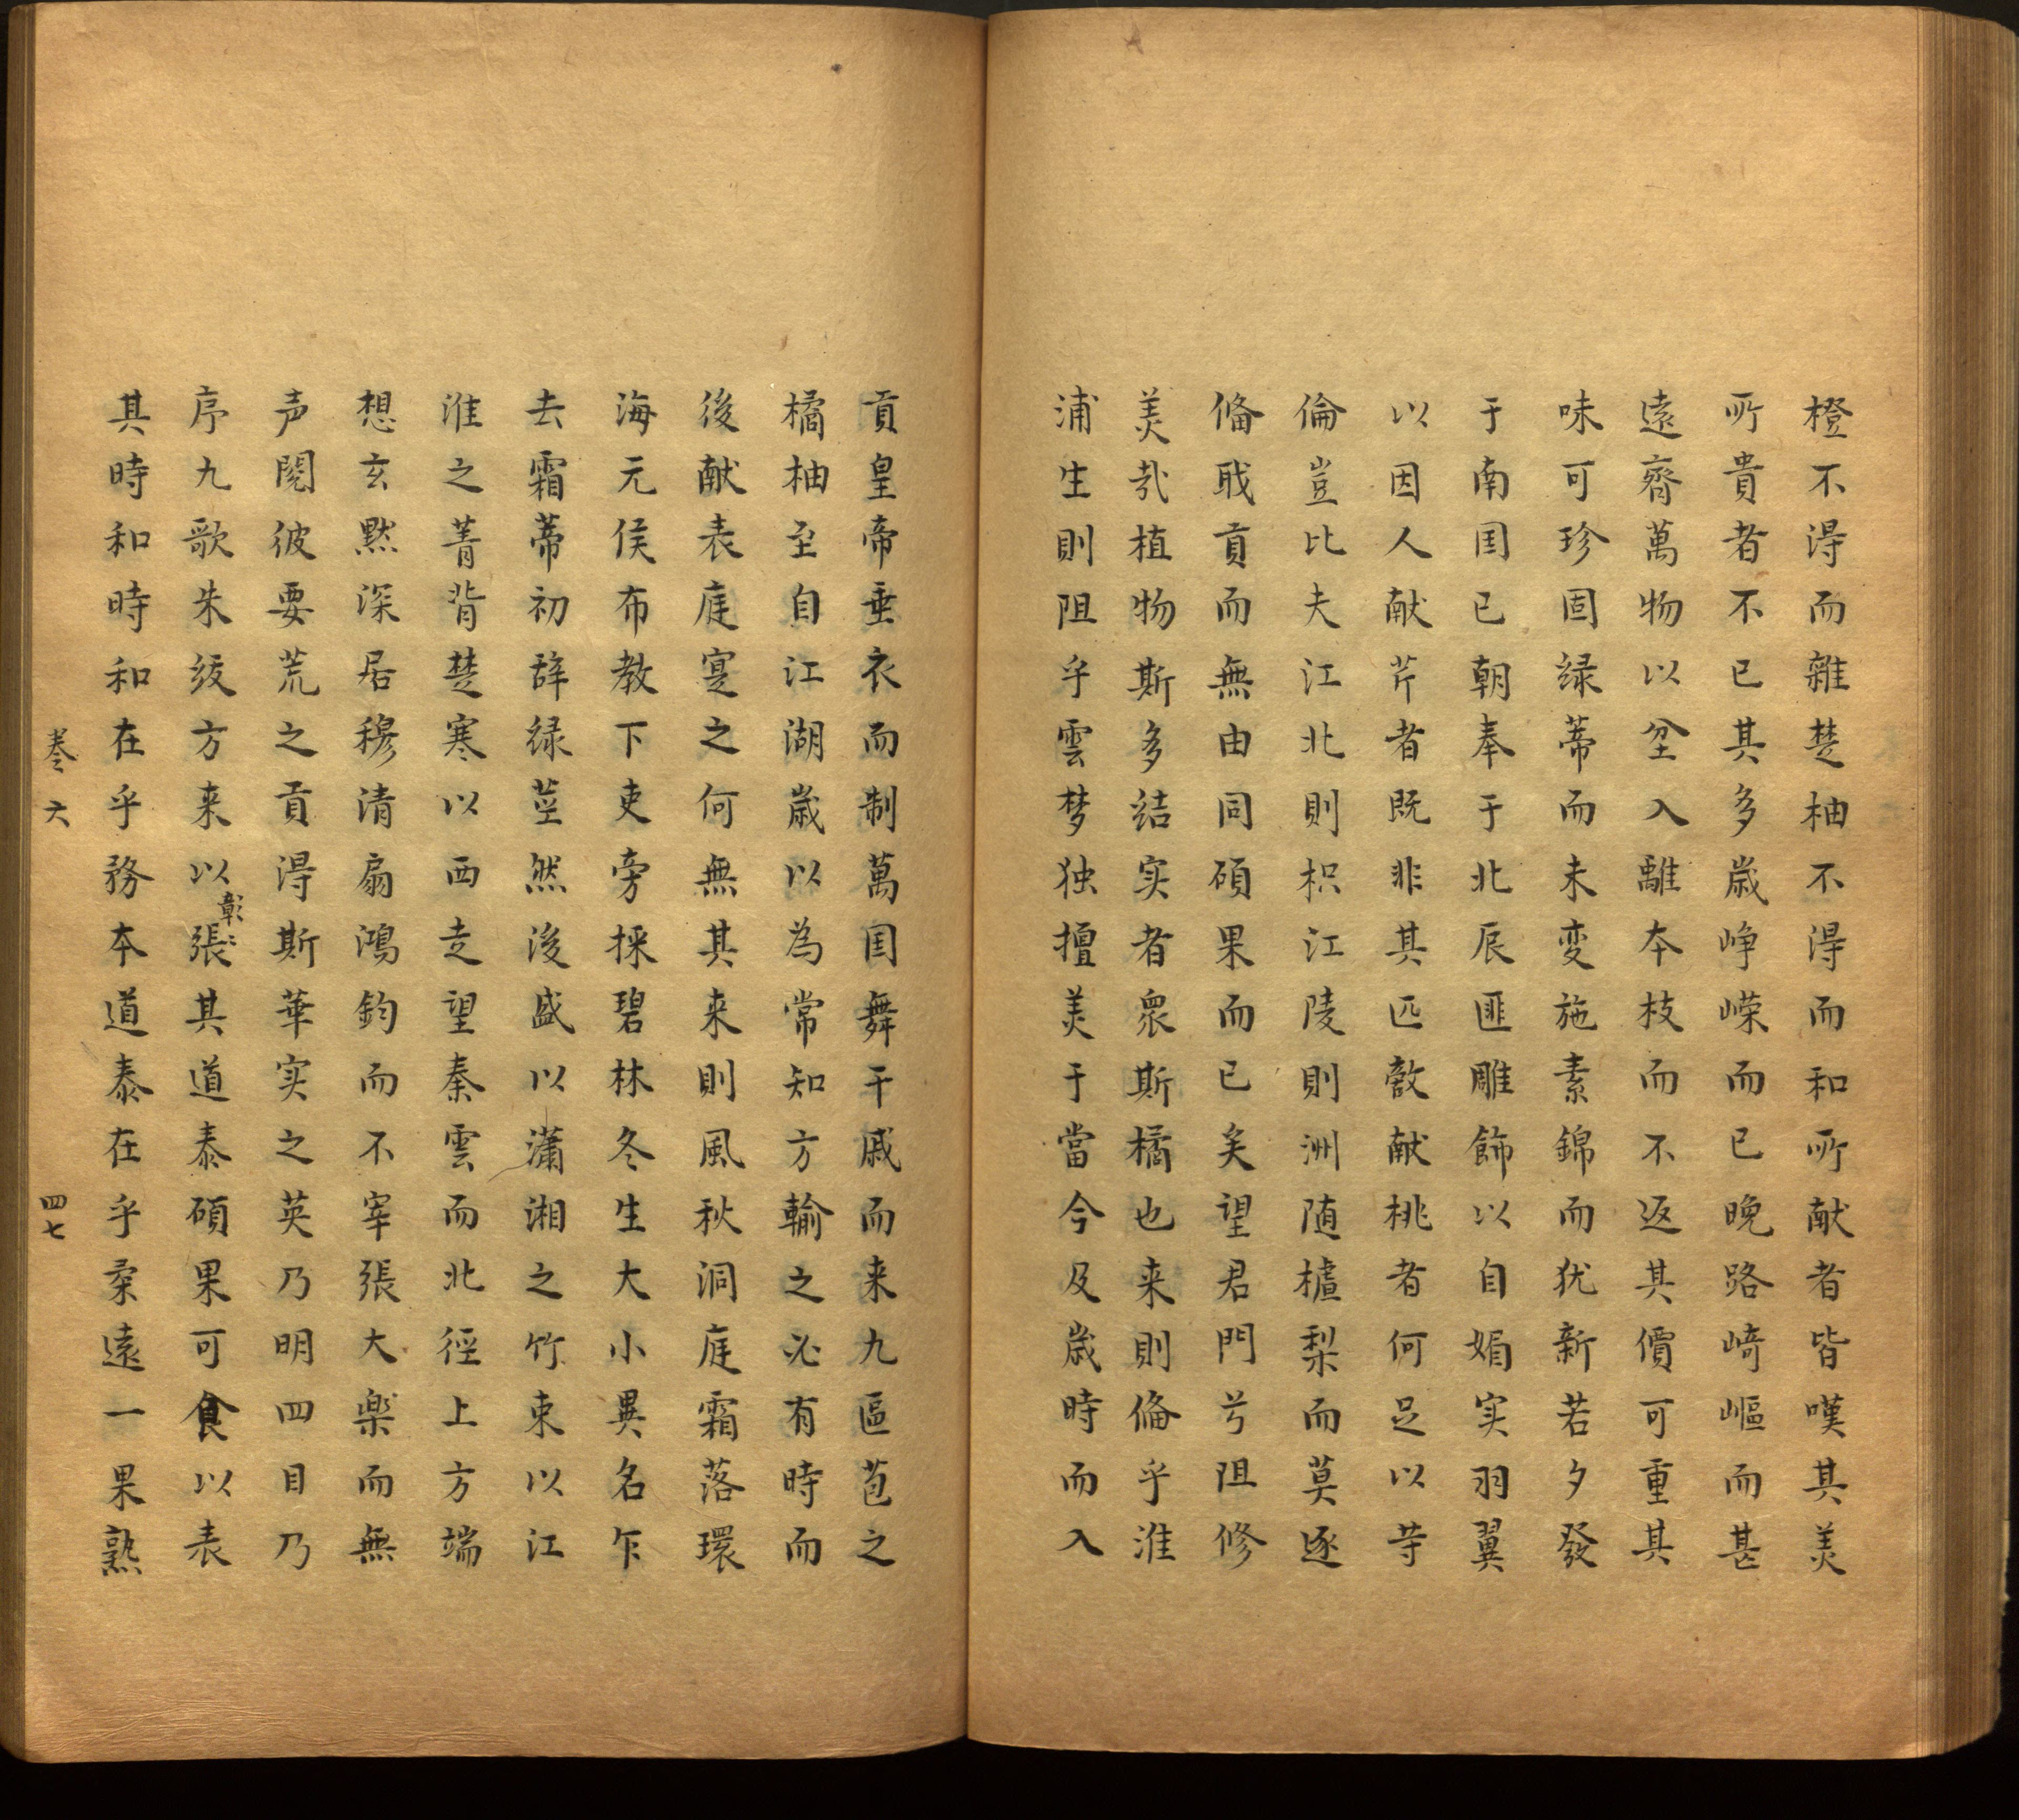 橙不得而雜楚柚不得而和所献者皆嘆其美
所貴者不已其多歳崢嶸而已晚路崎嶇而甚
遠齊萬物以坌入離本枝而不返其價可重其
味可珍固緑蒂而未変施素錦而犹新若夕發
于南国已朝奉于北辰匪雕飾以自媚实羽翼
以因人献芹者既非其匹敵献桃者何足以等
倫豈比夫江北則枳江陵則洲随樝梨而莫逐
俻戢貢而無由同碩果而已矣望君門兮阻修
美㢤植物斯多结实者衆斯橘也来則俻乎淮
浦生則阻乎雲梦独擅美于當今及歳時而入
貢皇帝垂衣而制萬国舞干戚而来九區苞之
橘柚至自江湖歳以為常知方輸之必有時而
後献表庭寔之何無其来則風秋洞庭霜落環
海元侯布教下吏旁採碧林冬生大小異名乍
去霜蒂初辞緑莖然後盛以瀟湘之竹束以江
淮之菁背楚寒以西走望秦雲而北徑上方端
想玄默深居穆清扇鴻鈞而不宰張大樂而無
声閱彼要荒之貢得斯華实之英乃明四目乃
序九歌朱紱方来以張彰其道泰碩果可食以表
其時和時和在乎務本道泰在乎柔遠一果熟
卷六
四七